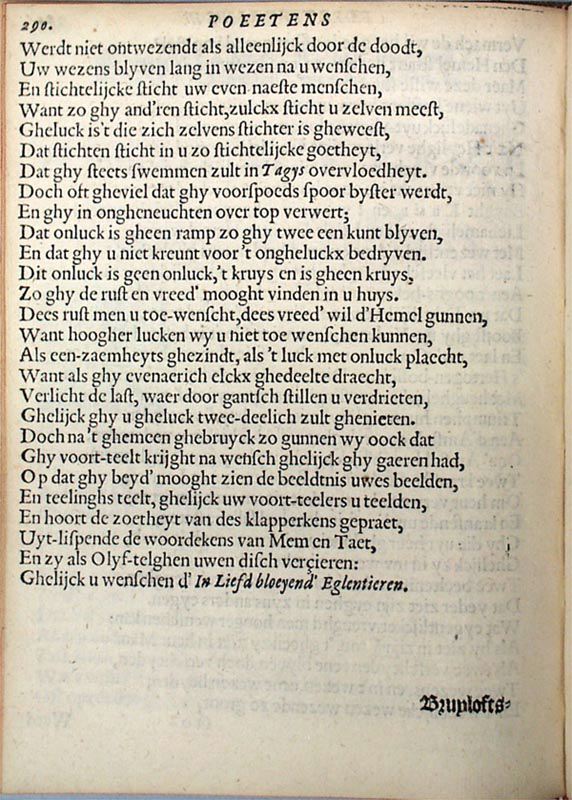 290.
POEETENS
Werdt niet ontwezendt als alleenlijck door de doodt,
Uw wezens blyven lang in wezen na u wenschen,
En stichtelijcke sticht uw even naeste menschen,
Want zo ghy and'ren sticht, zulckx sticht u zelven meest,
Gheluck is't die zich zelvens stichter is gheweest,
Dat stichten sticht in u zo stichtelijcke goetheyt,
Dat ghy steets swemmen zult in Tagys overvloedheyt.
Doch oft gheviel dat ghy voorspoeds spoor byster werdt,
En ghy in ongheneuchten over top verwert;
Dat onluck is gheen ramp zo ghy twee een kunt blyven,
En dat ghy u niet kreunt voor 't ongheluckx bedryven.
Dit onluck is geen onluck, 't kruys en is gheen kruys,
Zo ghy de rust en vreed' mooght vinden in u huys.
Dees rust men u toe-wenscht, dees vreed' wil d'Hemel gunnen,
Want hoogher lucken wy u niet toe wenschen kunnen,
Als een-zaemheyts ghezindt, als 't luck met onluck plaecht,
Want als ghy evenaerich elckx ghedeelte draecht,
Verlicht de last, waer door gantsch stillen u verdrieten,
Ghelijck ghy u gheluck twee-deelich zult ghenieten.
Doch na 't ghemeen ghebruyck zo gunnen wy oock dat
Ghy voort-teelt krijght na wensch ghelijck ghy gaeren had,
Op dat ghy beyd' mooght zien de beeldtnis uwes beelden,
En teelinghs teelt, ghelijck uw voort-teelers u teelden,
En hoort de zoetheyt van des klapperkens gepraet,
Uyt-lispende de woordekens van Mem en Taet,
En zy als Olyf-telghen uwen disch verçieren:
Ghelijck u wenschen d' In Liefd bloeyend' Eglentieren.
Bruylofts-